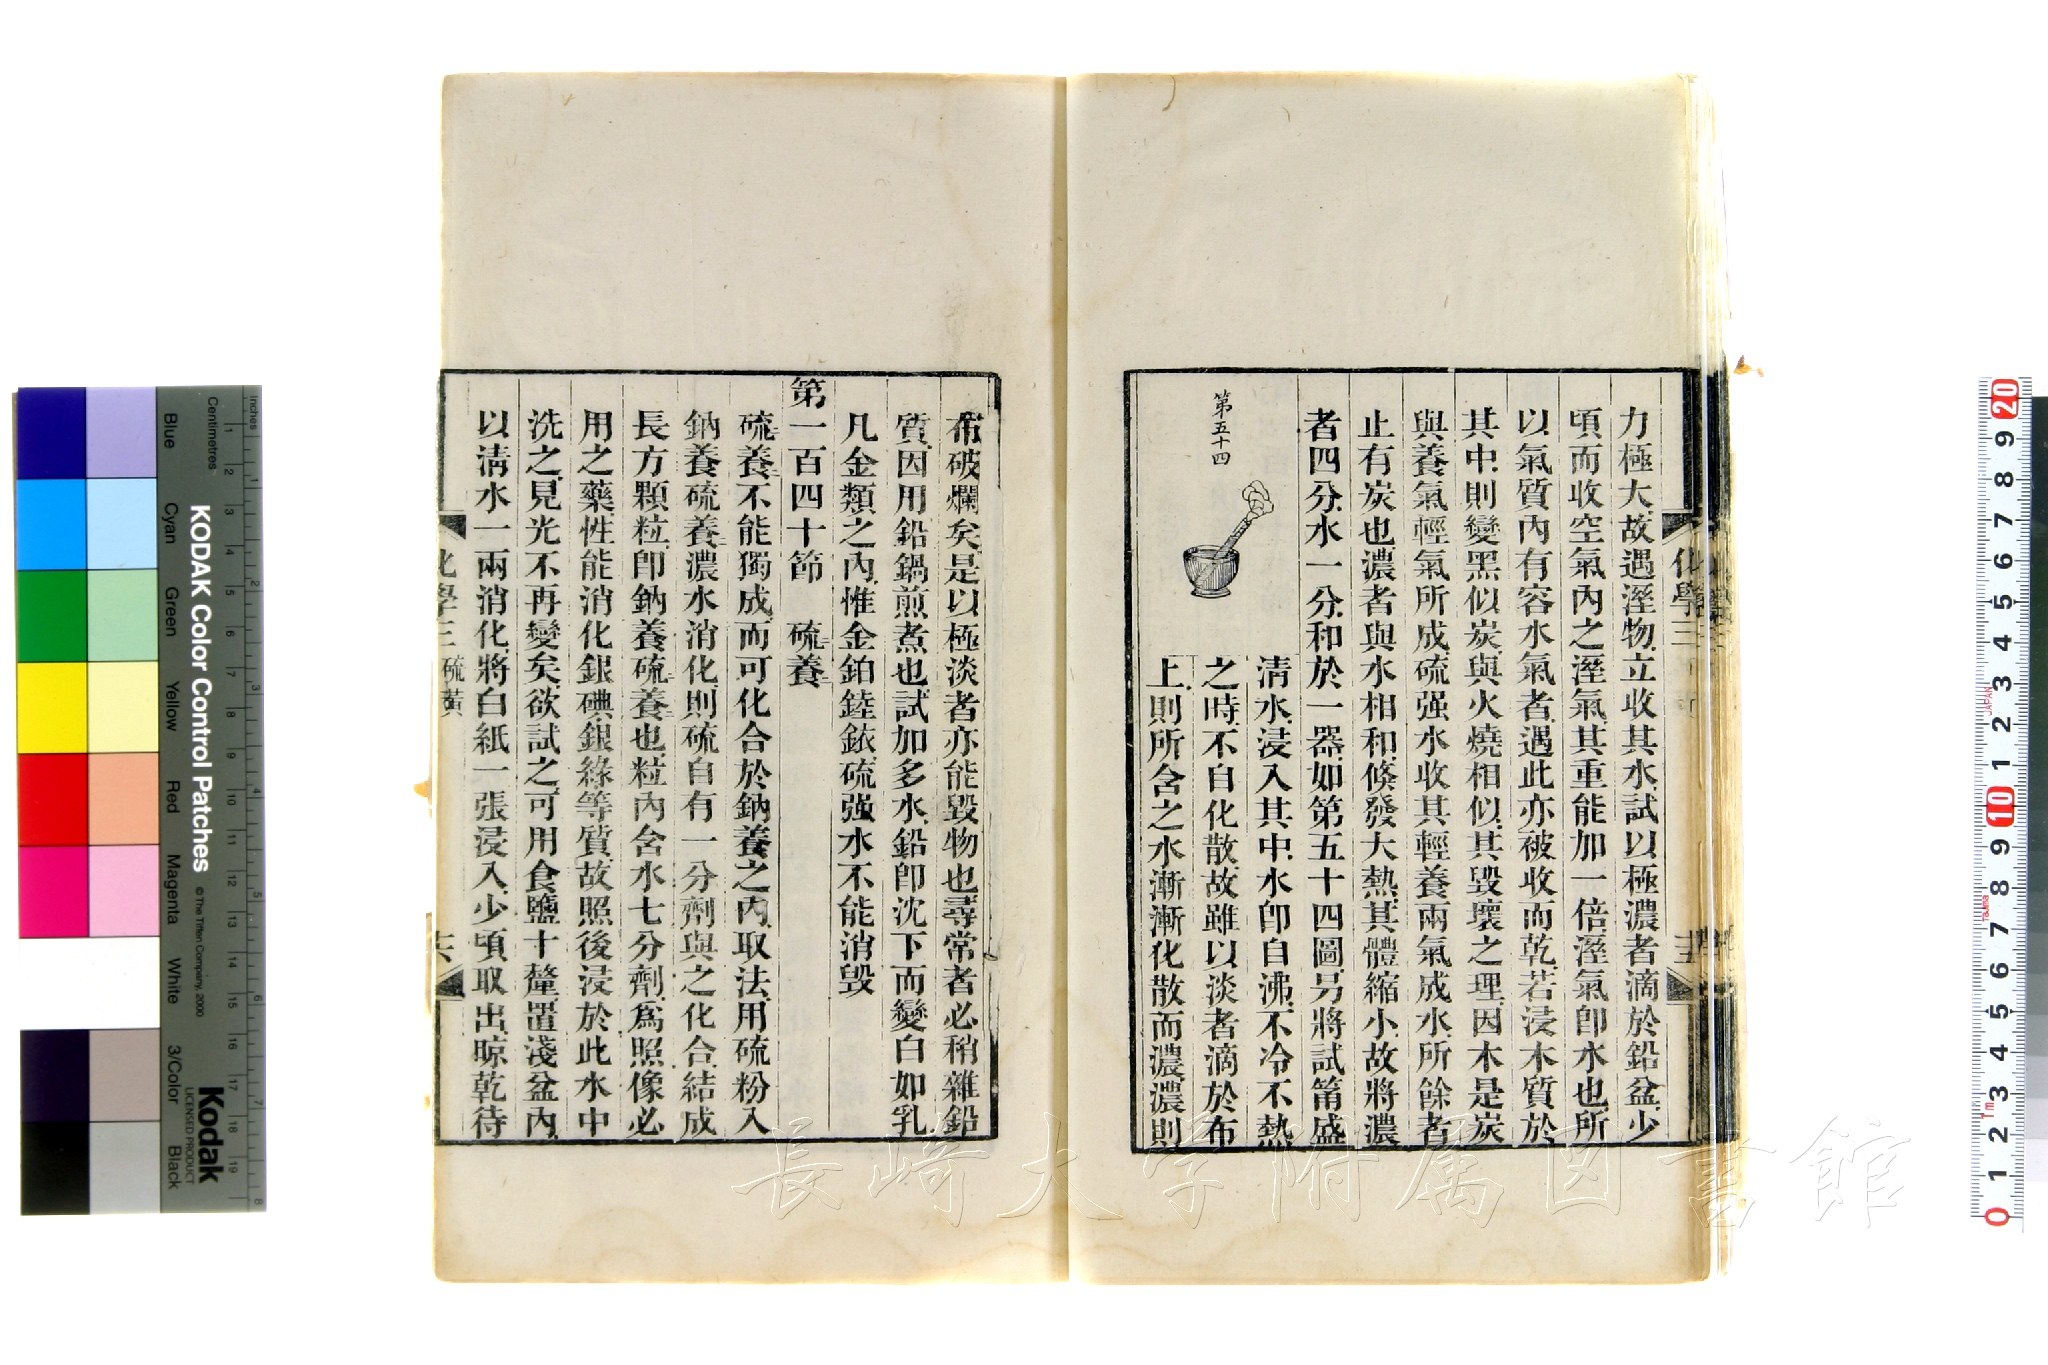 力極大故遇溼物立收其水試以極濃者滴於鉛盆少
頃而收空氣內之溼氣其重能加一倍溼氣卽水也所
以氣質內有容水氣者遇此亦被收而乾若浸木質於
其中則變黑似炭與火燒相似其毀壞之理因木是炭
與養氣輕氣所成硫强水收其輕養兩氣成水所餘者
止有炭也濃者與水相和倏發大熱其體縮小故將濃
者四分水一分和於一器如第五十四圖另將試筩盛
第五十四
清水浸入其中水卽自沸不冷不熱
之時不自化散故雖以淡者滴於布
上則所含之水漸漸化散而濃濃則
化學三
布破爛矣是以極淡者亦能毀物也尋常者必稍雜鉛
質因用鉛鍋煎煮也試加多水鉛卽沈下而變白如乳
凡金類之內惟金鉑錴銥硫强水不能消毀
第一百四十節 硫養
硫養不能獨成而可化合於鈉養之內取法用硫粉入
鈉養硫養濃水消化則硫自有一分劑與之化合結成
長方顆粒卽鈉養硫養也粒內含水七分劑爲照像必
用之藥性能消化銀碘銀綠等質故照後浸於此水中
洗之見光不再變矣欲試之可用食鹽十釐置淺盆內
以清水一兩消化將白紙一張浸入少頃取出晾乾待
化學三 硫黃
十六
KODAK Color Control Patches
© The Tiffen Company, 2000
Kodak
LICENSED PRODUCT
Inches
Centimetres
Blue
Cyan
Green
Yellow
Red
Magenta
White
3/Color
Black
1 2 3 4 5 6 7 8 9 10 11 12 13 14 15 16 17 18 19
1 2 3 4 5 6 7 8
0 1 2 3 4 5 6 7 8 9 10 1 2 3 4 5 6 7 8 9 20
1m
JAPAN
長崎大学附属図書館